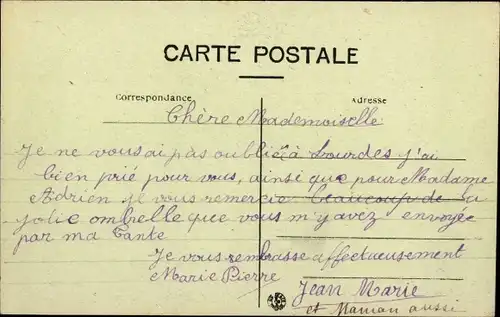 CARTE POSTALE
Correspondance Adresse
Chère Mademoiselle
Je ne vous ai pas oublié à Lourdes j'ai
bien prié pour vous, ainsi que pour Madame
Adrien je vous remercie beaucoup de la
jolie ombrelle que vous m'y avez envoyée
par ma Tante
Je vous rembrasse affectueusement
Marie Pierre
Jean Marie
et Maman aussi